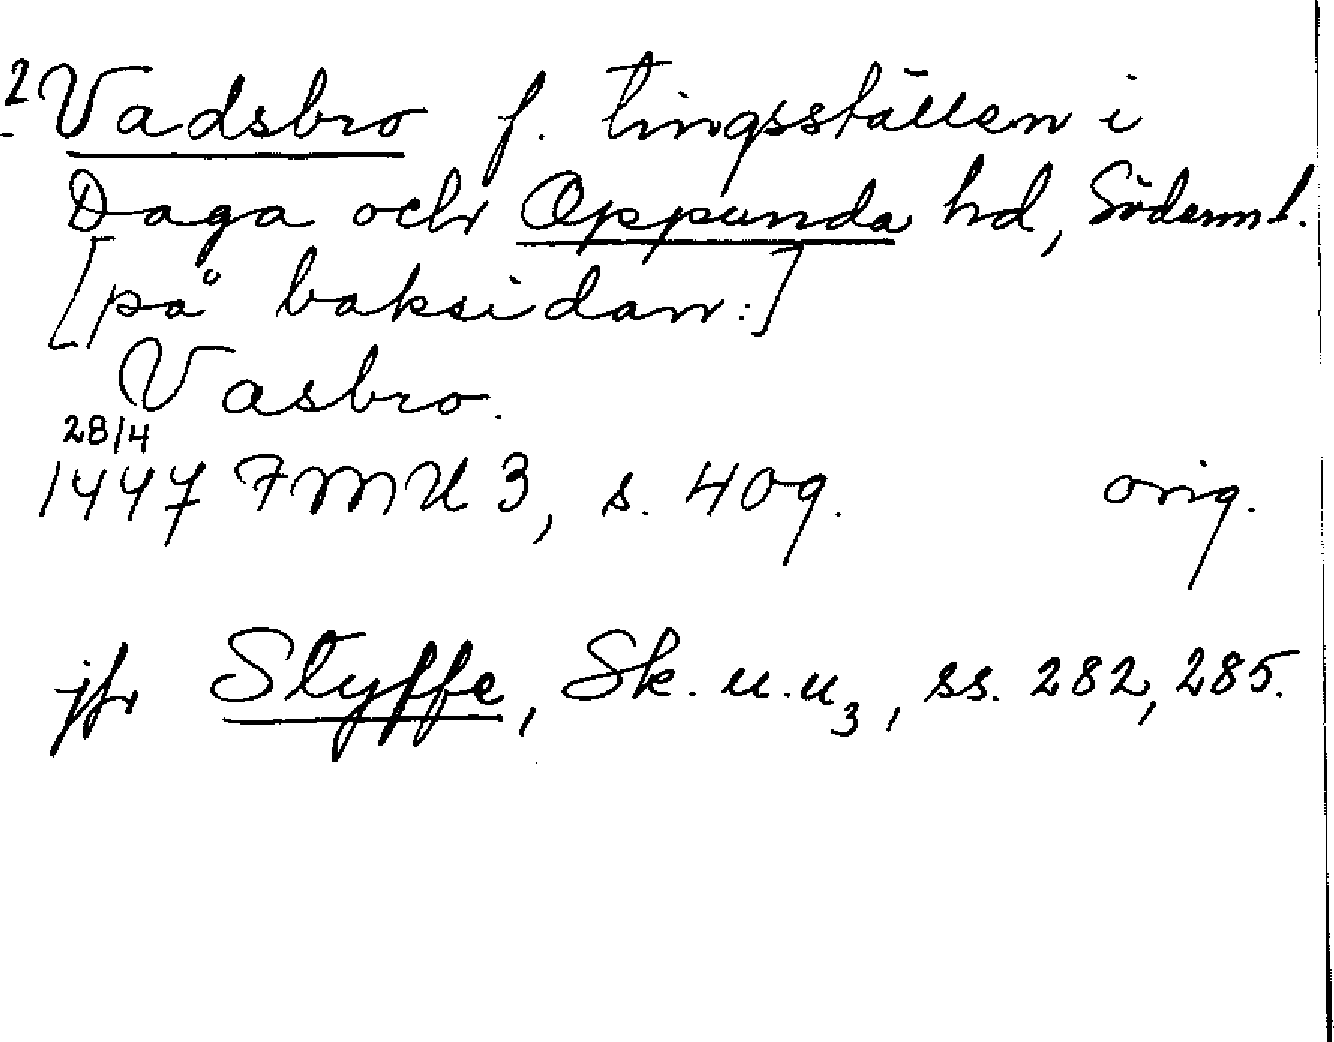 2 Vadsbro f. tingsställen i
Daga och Oppunda hd, Söderml.
[på baksidan:]
Vasbro.
28/4
1447 FMU 3, s. 409. orig.
jfr Styffe, Sk. u. u3, ss. 282, 285.